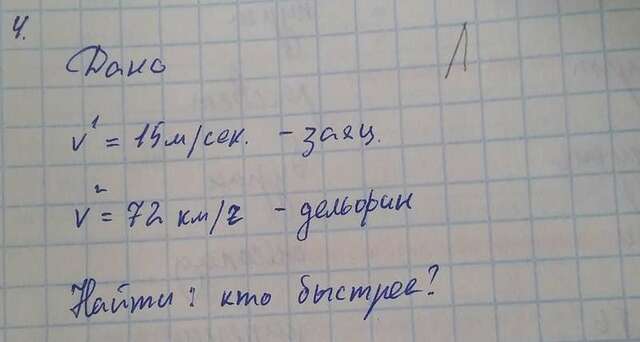 4.
Дано
v¹ = 15 м/сек. - заяц.
v² = 72 км/г - дельфин
Найти : кто быстрее?